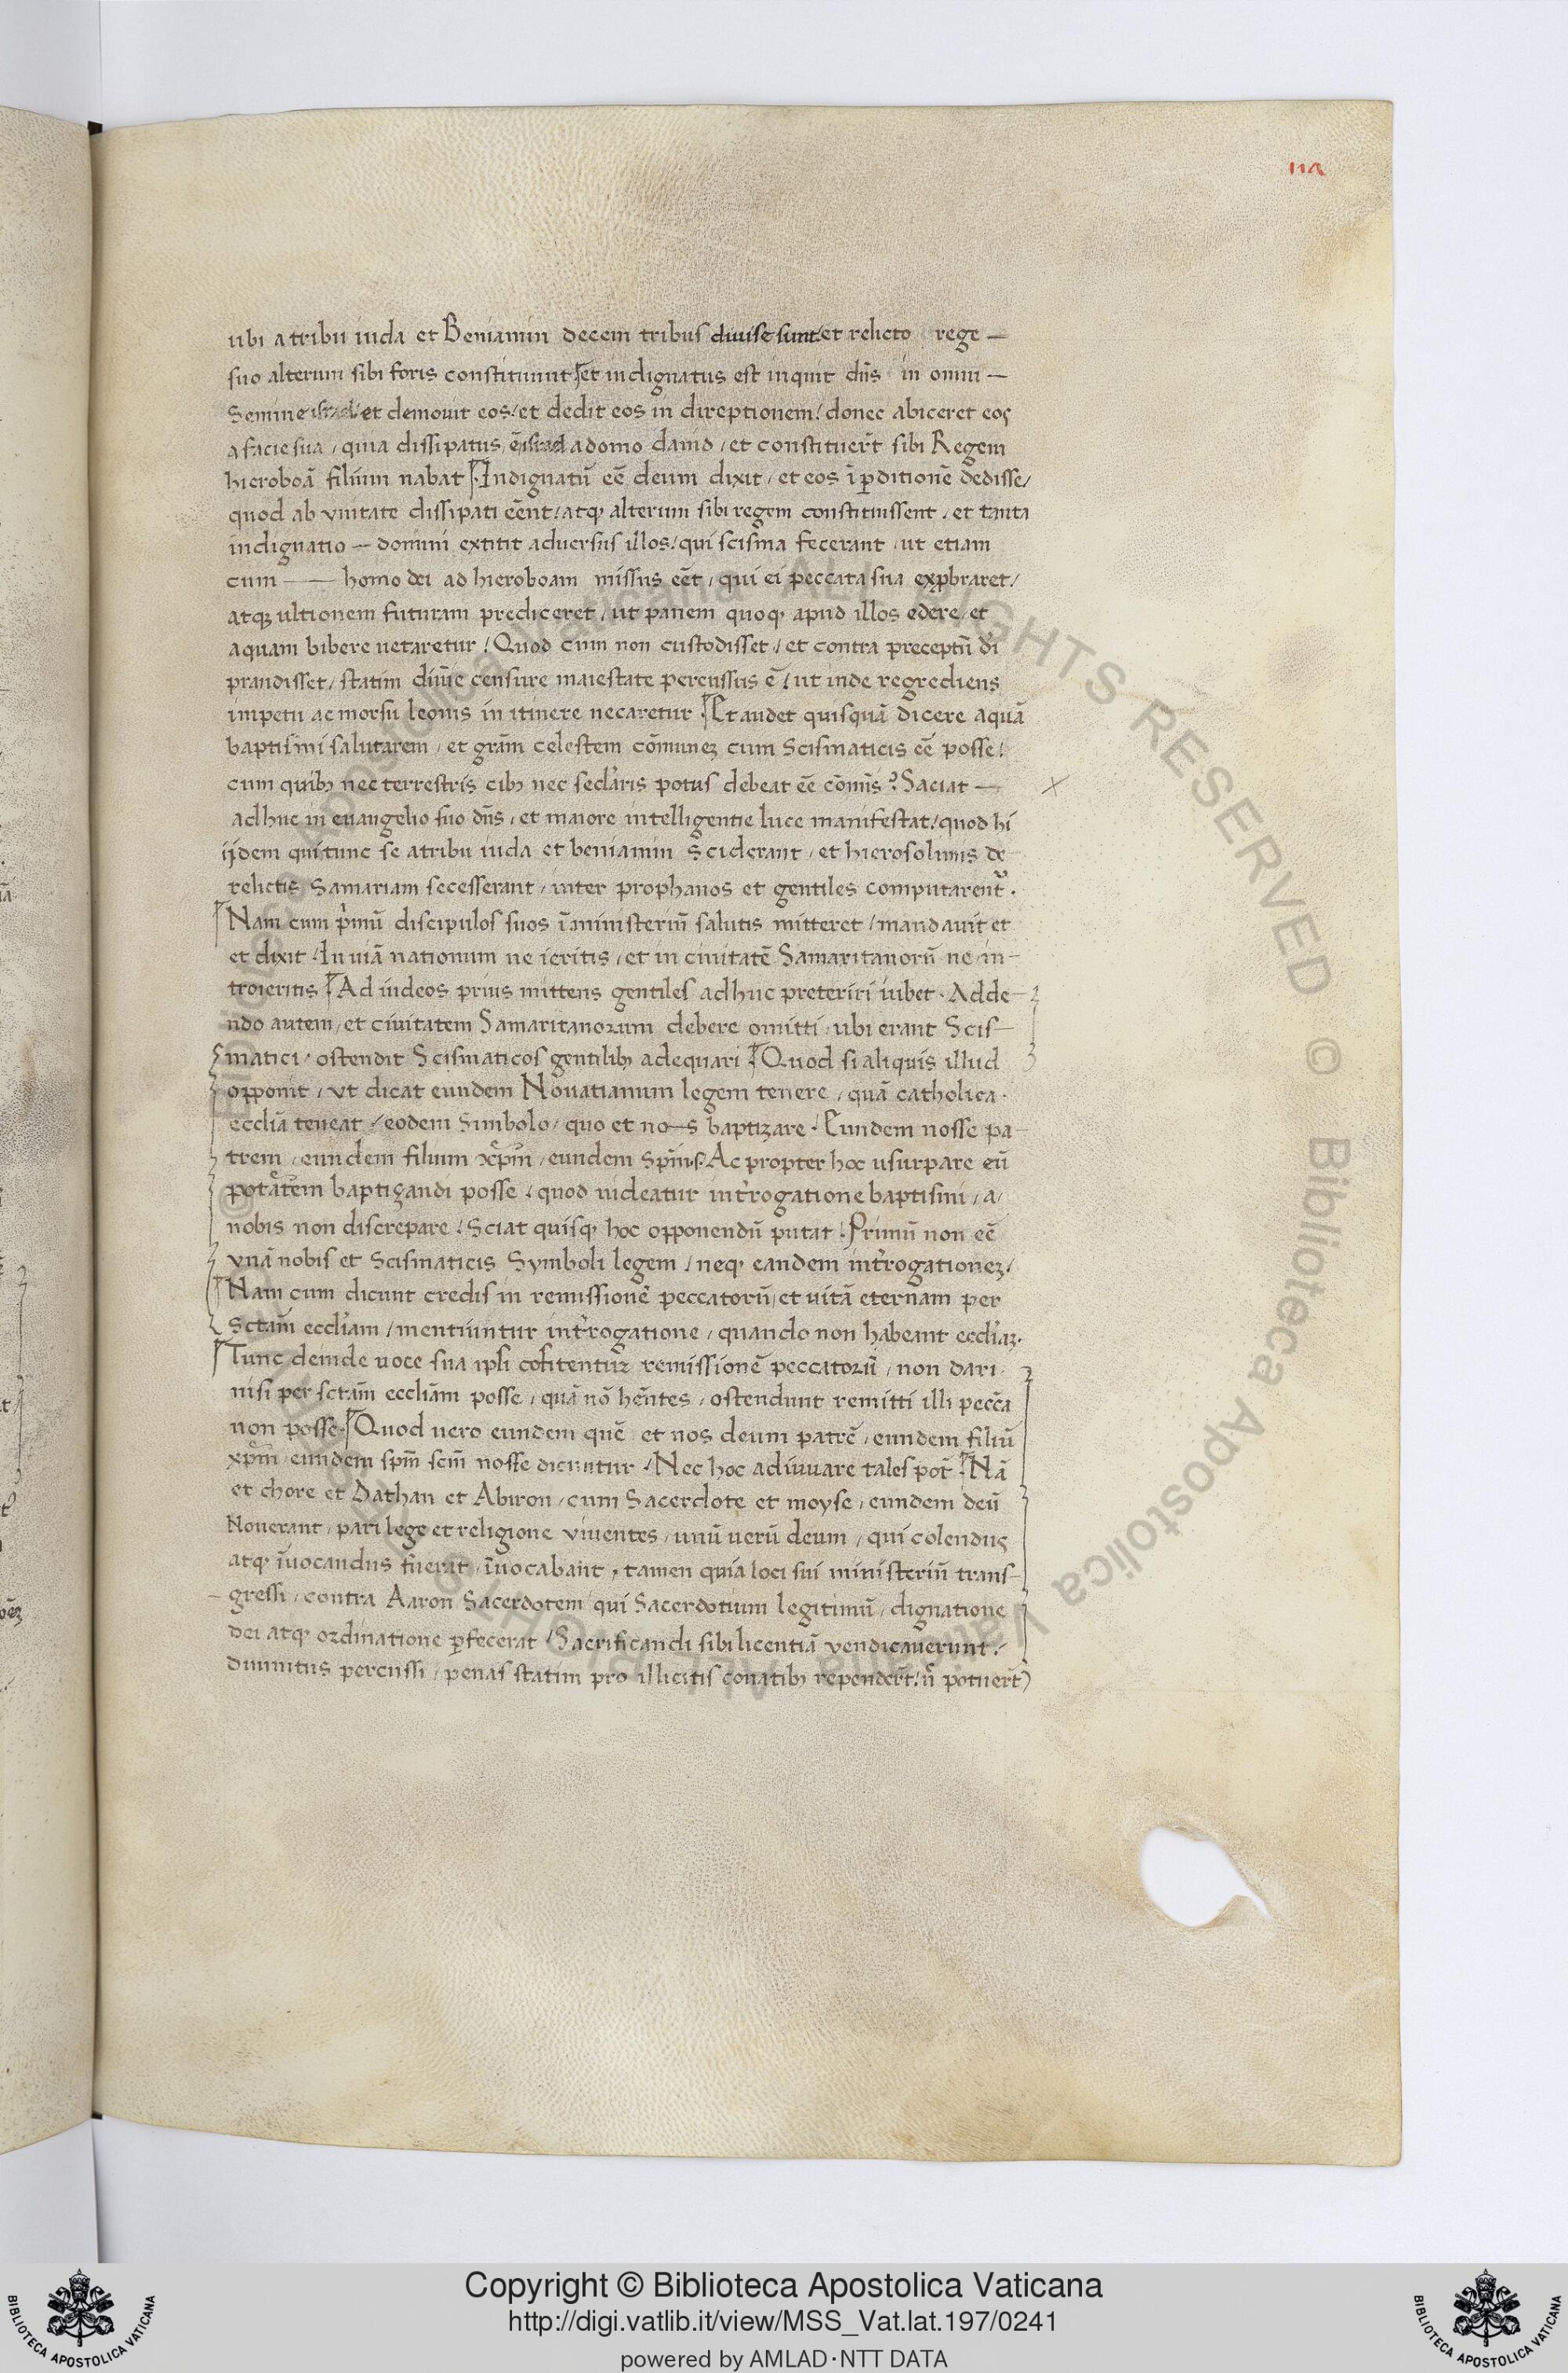 119
ubi a tribu iuda et Beniamin decem tribus diuise sunt. et relicto rege —
suo alterum sibi foris constituunt. et indignatus est inquit dñs in omni —
Semine israel / et demouit eos / et dedit eos in direptionem / donec abiceret eos
a facie sua / quia dissipatus ẽ israel a domo dauid / et constituer̃t sibi Regem
hieroboã filium nabat. Indignatũ eẽ deum dixit / et eos ĩ ꝑditionẽ dedisse /
quod ab vnitate dissipati eẽnt / atqꝫ alterum sibi regem constituissent / et tanta
indignatio — domini extitit aduersus illos / qui scisma fecerant / ut etiam
cum — homo dei ad hieroboam missus eẽt / qui ei peccata sua exꝓbraret /
atqꝫ ultionem futuram prediceret / ut panem quoqꝫ apud illos edere / et
aquam bibere uetaretur / Quod cum non custodisset / et contra preceptũ dĩ
prandisset / statim diuĩe censure maiestate percussus ẽ / ut inde regrediens
impetu ac morsu leonis in itinere necaretur. Et audet quisquã dicere aquã
baptismi salutarem / et grãm celestem cõmunez cum Scismaticis eẽ posse /
cum quibꝫ nec terrestris cibꝫ nec seclãris potus debeat eẽ cõmũs? Saciat —
adhuc in euangelio suo dñs / et maiore intelligentie luce manifestat / quod hi
ijdem qui tunc se a tribu iuda et beniamin Sciderant / et hierosolimis de
relictis Samariam secesserant / inter prophanos et gentiles computarent᷑.
Nam cum pͥmũ discipulos suos ĩ ministeriũ salutis mitteret / mandauit et
et dixit / In uiã nationum ne ieritis / et in ciuitatẽ Samaritanorũ ne in-
troieritis. Ad iudeos prius mittens gentiles adhuc preteriri iubet. Adde-
ndo autem / et ciuitatem Samaritanorum debere omitti / ubi erant Scis-
matici / ostendit Scismaticos gentilibꝫ adequari. Quod si aliquis illud
opponit / vt dicat eundem Nouatianum legem tenere / quã catholica.
ecclĩa teneat / eodem Simbolo / quo et no-s baptizare. Eundem nosse pa-
trem / eundem filium xp̃m / eundem sp̃m s. Ac propter hoc usurpare eũ
potãtẽm baptizandi posse / quod uideatur int̃rogatione baptismi / a /
nobis non discrepare / Sciat quisqꝫ hoc opponendũ putat. Primũ non eẽ
vnã nobis et Scismaticis Symboli legem / neqꝫ eandem int̃rogationez /
Nam cum dicunt credis in remissionẽ peccatorũ / et uitã eternam per
Sctãm eccliãm / mentiuntur int̃rogatione / quando non habeant ecclĩaz.
Tunc deinde uoce sua ipsi cõfitentur remissionẽ peccatorũ / non dari
nisi per sctãm eccliãm posse / quã nõ hẽntes / ostendunt remitti illi pecc̃a
non posse. Quod uero eundem quẽ et nos deum patrẽ / eundem filiũ
xp̃m / eundem sp̃m scm̃ nosse dicuntur / Nec hoc adiuuare tales pot̃. Nã
et chore et Dathan et Abiron / cum Sacerdote et moyse / eundem deũ
Nouerant / pari lege et religione viuentes / unũ uerũ deum / qui colendus
atqꝫ ĩuocandus fuerat / ĩuocabant / tamen quia loci sui ministeriũ trans-
gressi / contra Aaron Sacerdotem qui Sacerdotium legitimũ / dignatione
dei atqꝫ ordinatione ꝑfecerat / Sacrificandi sibi licentiã vendicauerunt /
diuinitus percussi / penas statim pro illicitis conatibꝫ repender̃t / ñ potuer̃t
Copyright © Biblioteca Apostolica Vaticana
http://digi.vatlib.it/view/MSS_Vat.lat.197/0241
powered by AMLAD·NTT DATA